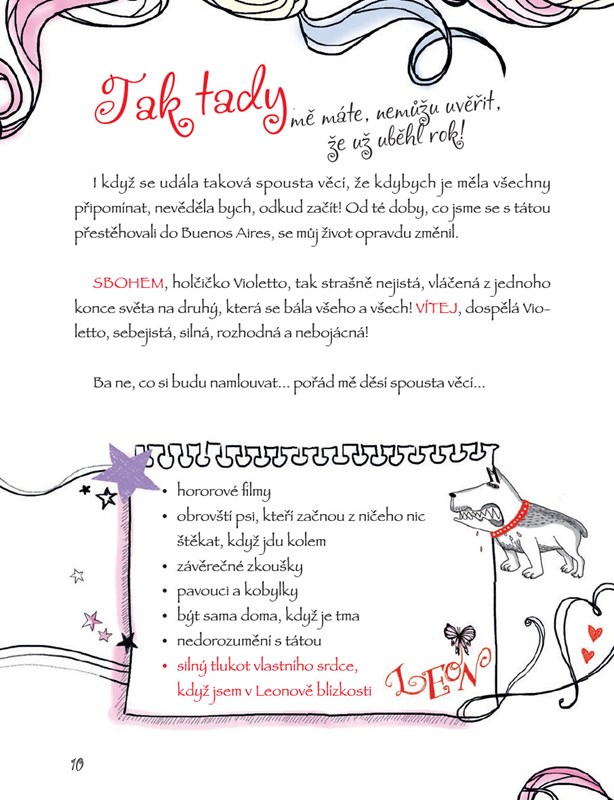 Tak tady mě máte, nemůžu uvěřit,
že už uběhl rok!
I když se udála taková spousta věcí, že kdybych je měla všechny
připomínat, nevěděla bych, odkud začít! Od té doby, co jsme se s tátou
přestěhovali do Buenos Aires, se můj život opravdu změnil.
SBOHEM, holčičko Violetto, tak strašně nejistá, vláčená z jednoho
konce světa na druhý, která se bála všeho a všech! VÍTEJ, dospělá Vio-
letto, sebejistá, silná, rozhodná a nebojácná!
Ba ne, co si budu namlouvat... pořád mě děsí spousta věcí...
• hororové filmy
• obrovští psi, kteří začnou z ničeho nic
štěkat, když jdu kolem
• závěrečné zkoušky
• pavouci a kobylky
• být sama doma, když je tma
• nedorozumění s tátou
• silný tlukot vlastního srdce,
když jsem v Leonově blízkosti
LEON
10